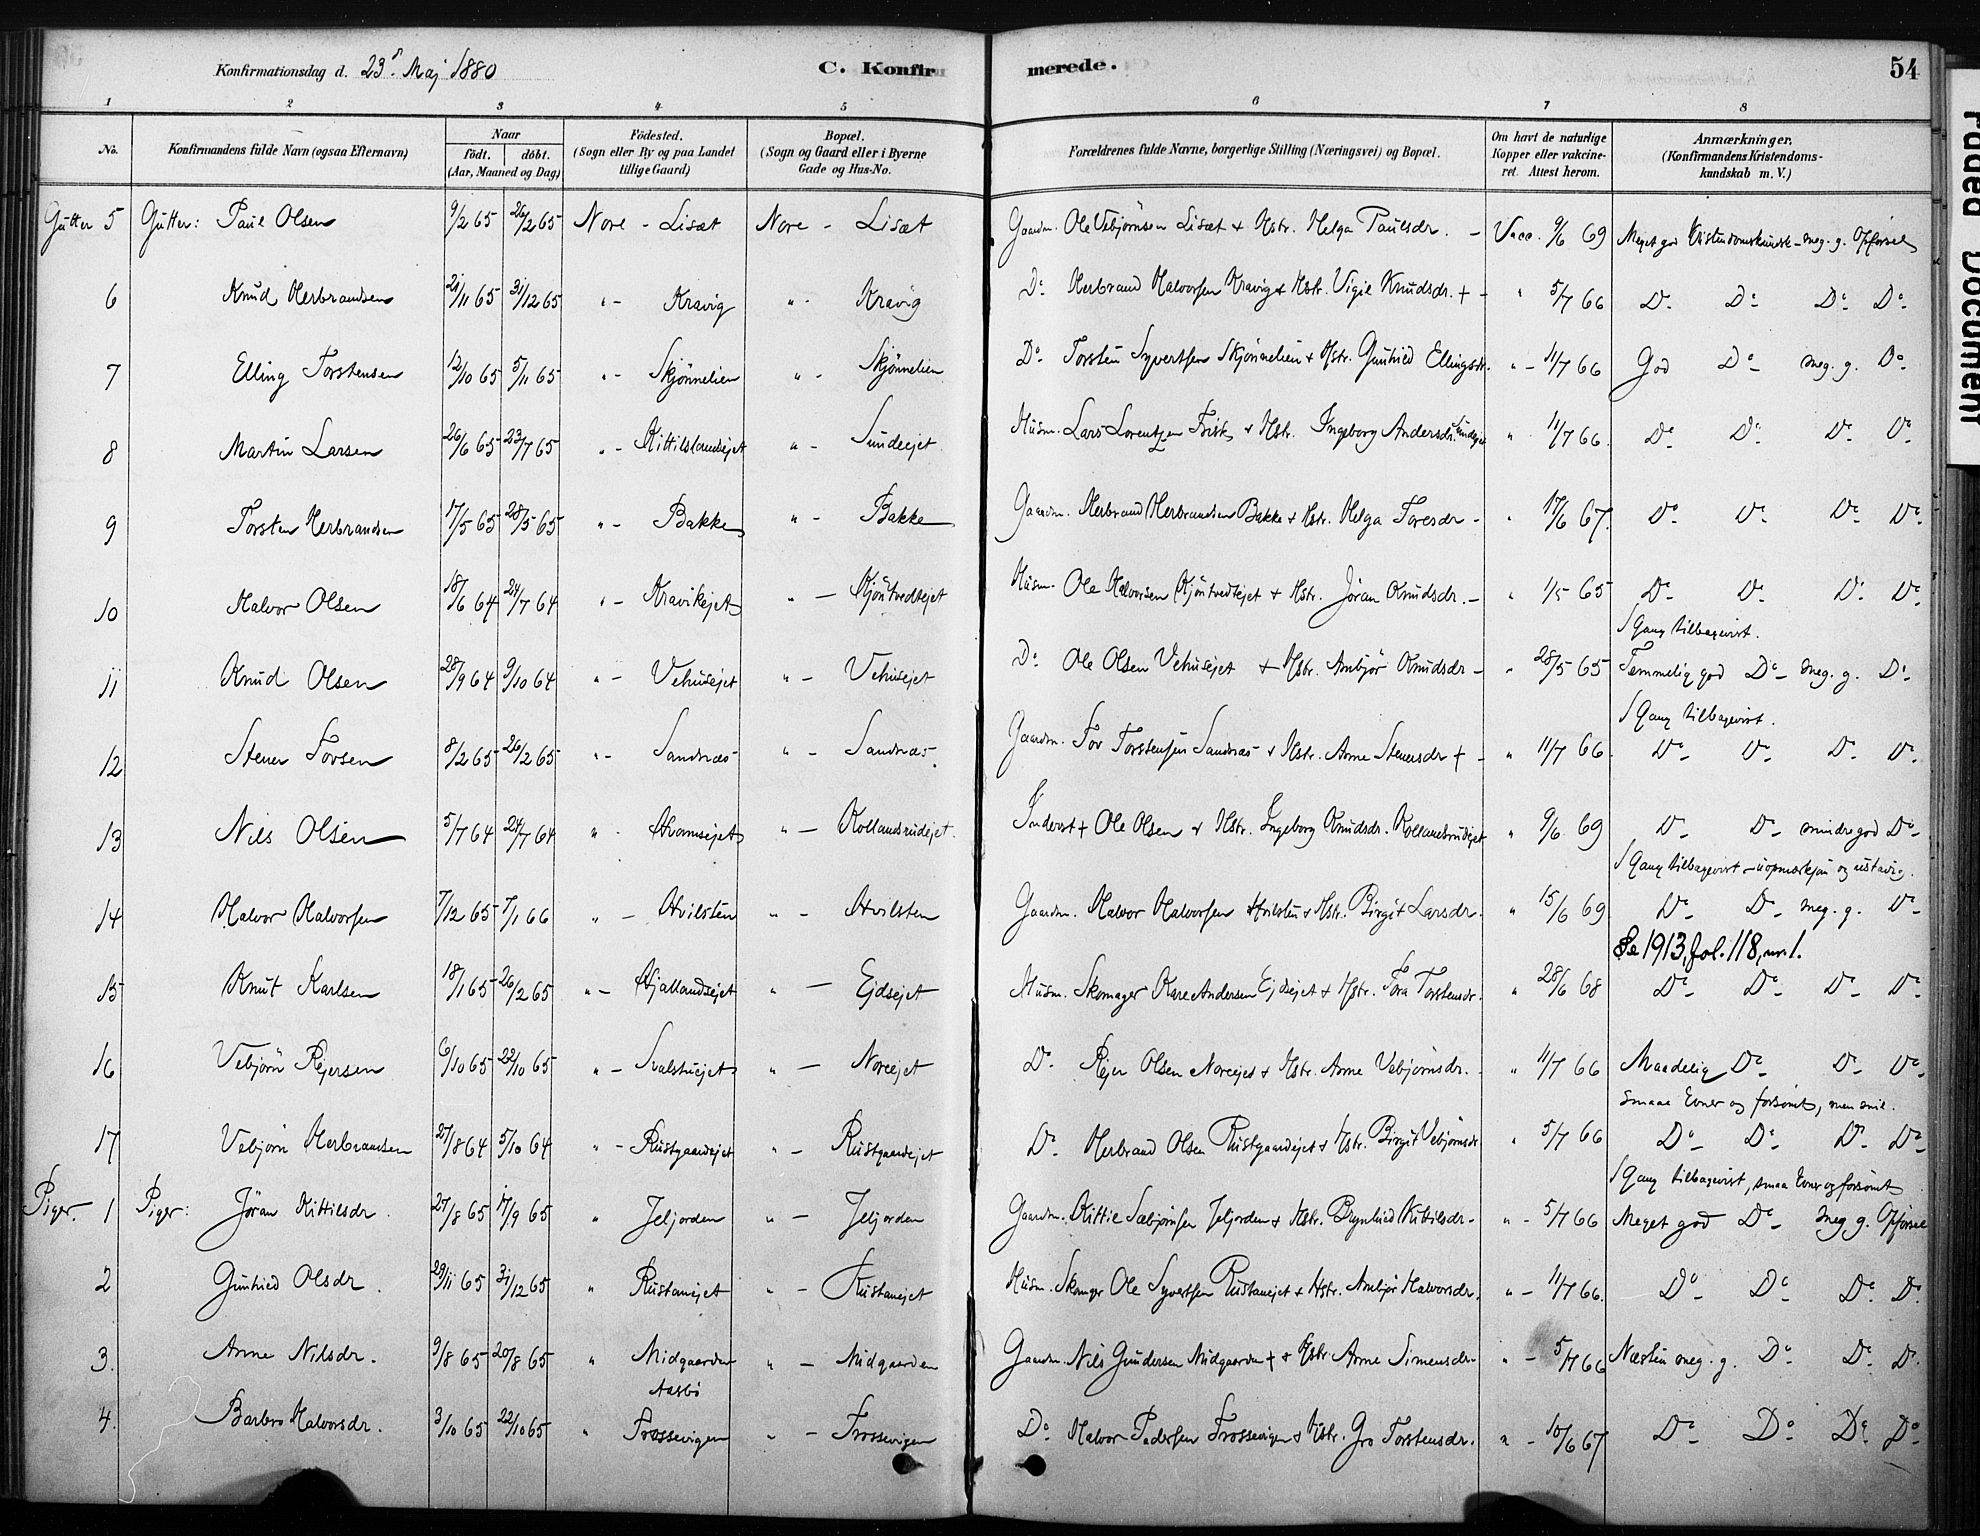 Konfirmationsdag d. 23de Maj 1880 C. Konfirmerede. 54
1 2 3 4 5 6 7 8
No. Konfirmandens fulde Navn (ogsaa Efternavn) Naar födt. döbt. (Aar, Maaned og Dag) Födested. (Sogn eller By og paa Landet tillige Gaard) Bopæl. (Sogn og Gaard eller i Byerne Gade og Hus-No. Forældrenes fulde Navne, borgerlige Stilling (Næringsvei) og Bopæl. Om havt de naturlige Kopper eller vakcineret. Attest herom. Anmærkninger. (Konfirmandens Kristendomskundskab m. V.)
Gutter 5 Gutter: Paul Olsen 9/2 65 26/2 65 Nore - Lisæt Nore - Lisæt Gaardm. Ole Vebjørnsen Lisæt + Hstr. Helga Paulsdr. - Vacc. 9/6 69 Meget god Kristendomskundsk - meg. g. Opførsel
6 Knud Herbrandsen 21/11 65 31/12 65 " - Kravig " - Kravig Do Herbrand Halvorsen Kravig + Hstr. Vigil Knudsdr. + - " 5/7 66 Do Do Do Do
7 Elling Torstensen 12/10 65 5/11 65 " - Skjønnelien " - Skjønnelien Do Torsten Syvertsen Skjønnelien + Hstr. Gunhild Ellingsdr. " - 11/7 66 God Do meg. g. Do
8 Martin Larsen 26/6 65 23/7 65 " - Kittilslandsejet " - Sundeejet Husm. Lars Lorentzen Frisk + Hstr. Ingeborg Andersdr. Sundejet " 11/7 66 Do Do Do Do
9 Torsten Herbrandsen 17/5 65 28/5 65 " - Bakke " - Bakke Gaardm. Herbrand Herbrandsen Bakke + Hstr. Helga Toresdr - " 17/6 67. Do Do Do Do
10 Halvor Olsen 18/6 64 24/7 64 " - Kravikejet " - Kjøntvedtejet Husm. Ole Halvorsen Kjøntvedtejet + Hstr. Jøran Knudsdr. - " 1/5 65 Do Do Do Do
1 Gang tilbagevist.
11 Knud Olsen 28/9 64 9/10 64 " - Vehusejet " - Vehusejet Do Ole Olsen Vehusejet + Hstr. Anbjør Knudsdr - " 28/5 65 Temmelig god Do - meg. g. Do
1 Gang tilbagevist.
12 Stener Torsen 8/2 65 26/2 65 " - Sandnæs " - Sandnæs. Gaardm. Tor Torstensen Sandnæs + Hstr. Anne Stenersdr + - " 11/7 66 Do Do Do Do
13 Nils Olsen 5/7 64 24/7 64 " - Hvamsejet " - Kollandsrudejet. Inderst + Ole Olsen + Hstr. Ingeborg Knudsdr. Kollandsrudejet " 9/6 69 Do Do mindre god Do
1 Gang tilbagevist - uopmærksom og ustadig.
14 Halvor Halvorsen 7/12 65 7/1 66 " - Hvilsten " - Hvilsten Gaardm. Halvor Halvorsen Hvilsten + Hstr. Birgit Larsdr. " 15/6 69 Do Do meg. g. Do
Se 1913, fol. 118, nr 1.
15 Knut Karlsen 18/1 65 26/2 65 " - Hjallandsejet " - Ejdsejet Husm. Skomager Kare Andersen Ejdsejet + Hstr. Tora Torstensdr. " 28/6 68 Do Do Do Do
16 Vebjørn Rejersen 6/10 65 22/10 65 " - Svalstuejet " - Noreejet Do Rejer Olsen Noreejet + Hstr. Anne Vebjørnsdr. " 11/7 66 Maadelig Do Do Do
smaae Evner og forsømt, men snil.
17 Vebjørn Herbrandsen 27/8 64 5/10 64 " - Rustgaardejet " - Rustgaardejet Do Herbrand Olsen Rustgaardejet + Hstr. Birgit Vebjørnsdr " 5/7 66 Do Do Do Do
1 Gang tilbagevist, smaa Evner og forsømt
Piger. 1 Piger: Jøran Kittilsdr 27/8 65 17/9 65 " Jeljorden " - Jeljorden Gaardm. Kittil Sæbjørnsen Jeljorden + Hstr. Brynhild Kittilsdr - " - 5/7 66 Meget god Do meg g. Opførsel
2 Gunhild Olsdr. 29/11 65 31/12 65 " Rustanejet " - Rustanejet Husm. Skomager Ole Syvertsen Rustanejet + Hstr. Anbjør Halvorsdr. " - 11/7 66. Do Do Do Do
3. Anne Nilsdr. 9/8 65 20/8 65 " Midgaarden " - Midgaarden Gaardm. Nils Gundersen Midgaarden + + Hstr Anne Simensdr. " - 5/7 66 Næsten meg. g. Do Do Do
Aasbø
4. Barbro Halvorsdr. 3/10 65 22/10 65 " Frossevigen " - Frossevigen Do Halvor Pedersen Frossevigen + Hstr. Gro Torstensdr. " - 10/6 67 Do Do Do Do